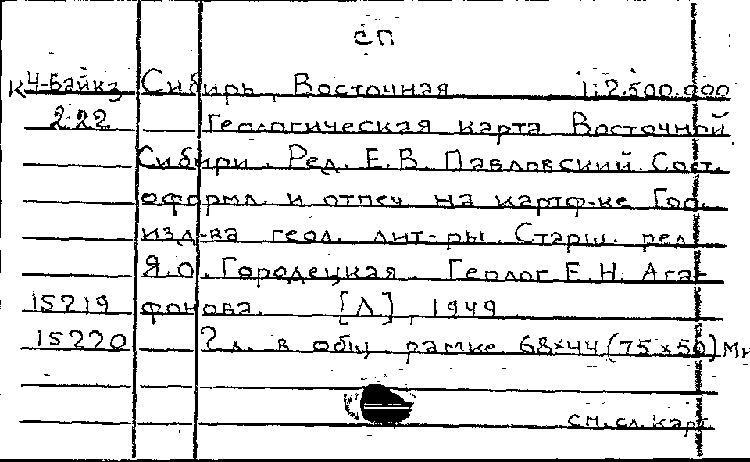 СП
К4-Байкз Сибирь, Восточная 1:2.500.000
2.22 Геологическая карта Восточной
Сибири. Ред. Е.В. Павловский. Сост.
оформл. и отпеч. на картф-ке Гос.
изд-ва геол. лит-ры. Старш. ред.
Я.О. Городецкая. Геолог Е.Н. Ага-
15219 фонова. [Л], 1949
15220 2 л. в общ. рамке 68×44 (75×50)
см. сл. карт.